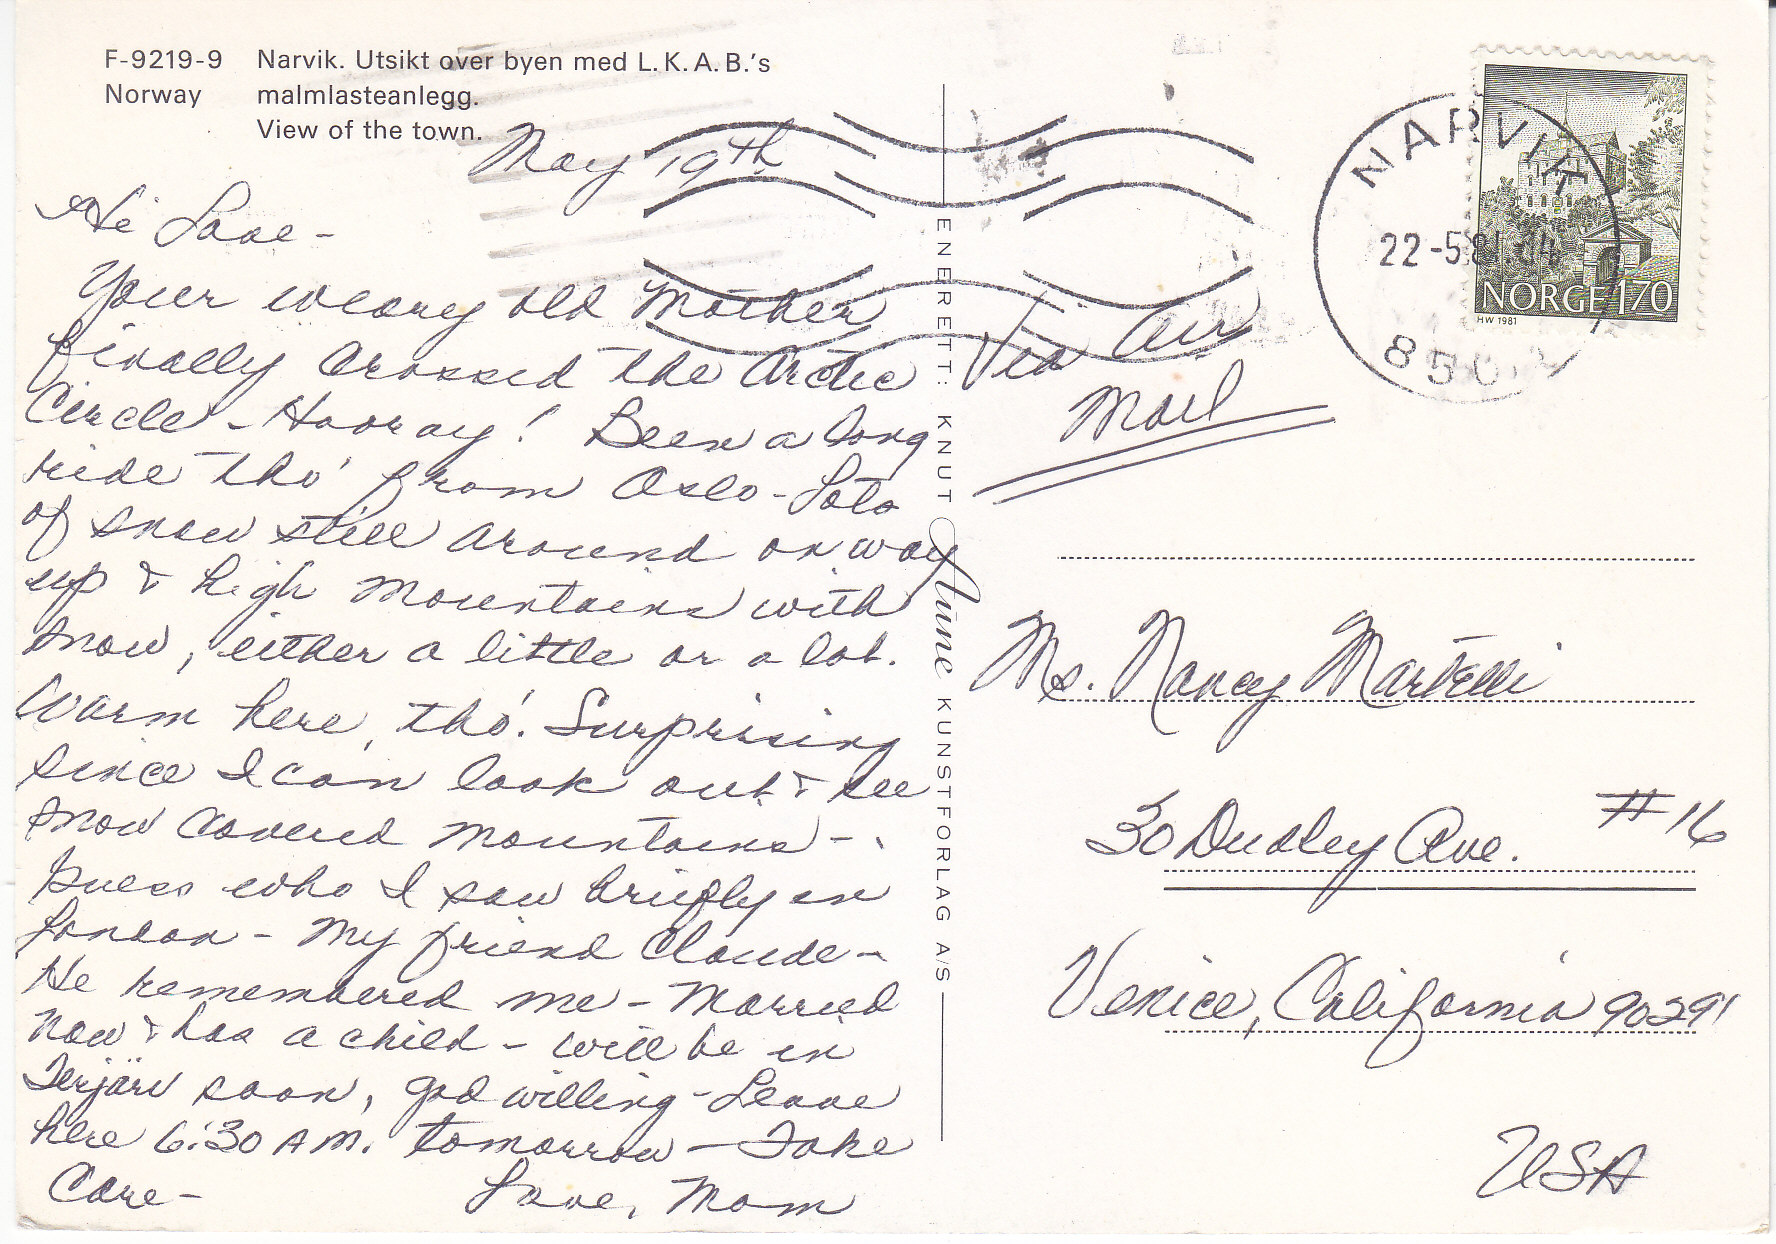 F-9219-9 Narvik. Utsikt over byen med L.K.A.B.'s
Norway malmlasteanlegg.
View of the town.
May 19th
Hi Love -
Your weary old Mother
finally crossed the Arctic
Circle - Hooray! Been a long
ride tho' from Oslo - Lots
of snow still around on way
up & high mountains with
snow, either a little or a lot.
Warm here, tho'. Surprising
since I can look out & see
snow covered mountains -
Guess who I saw briefly in
London - My friend Claude -
He remembered me - Married
now & has a child - will be in
Terjärv soon, God willing - Leave
here 6:30 AM. tomorrow - Take
Care - Love, Mom
ENERETT: KNUT Aune KUNSTFORLAG A/S
NARVIK
22-5 81
850
NORGE 170
HW 1981
Via Air
Mail
Ms. Nancy Martelli
30 Dudley Ave. #16
Venice, California 90291
USA